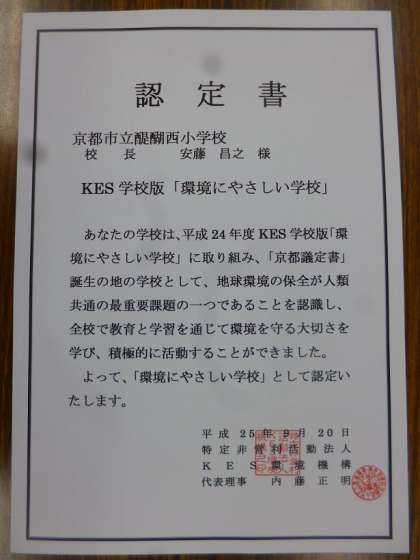 認定書
京都市立醍醐西小学校
校 長 安藤 昌之 様
KES 学校版「環境にやさしい学校」
あなたの学校は、平成 24 年度 KES 学校版「環
境にやさしい学校」に取り組み、「京都議定書」
誕生の地の学校として、地球環境の保全が人類
共通の最重要課題の一つであることを認識し、
全校で教育と学習を通じて環境を守る大切さを
学び、積極的に活動することができました。
よって、「環境にやさしい学校」として認定い
たします。
平成 25年 9月 20日
特定非営利活動法人
KES環境機構
代表理事 内藤正明